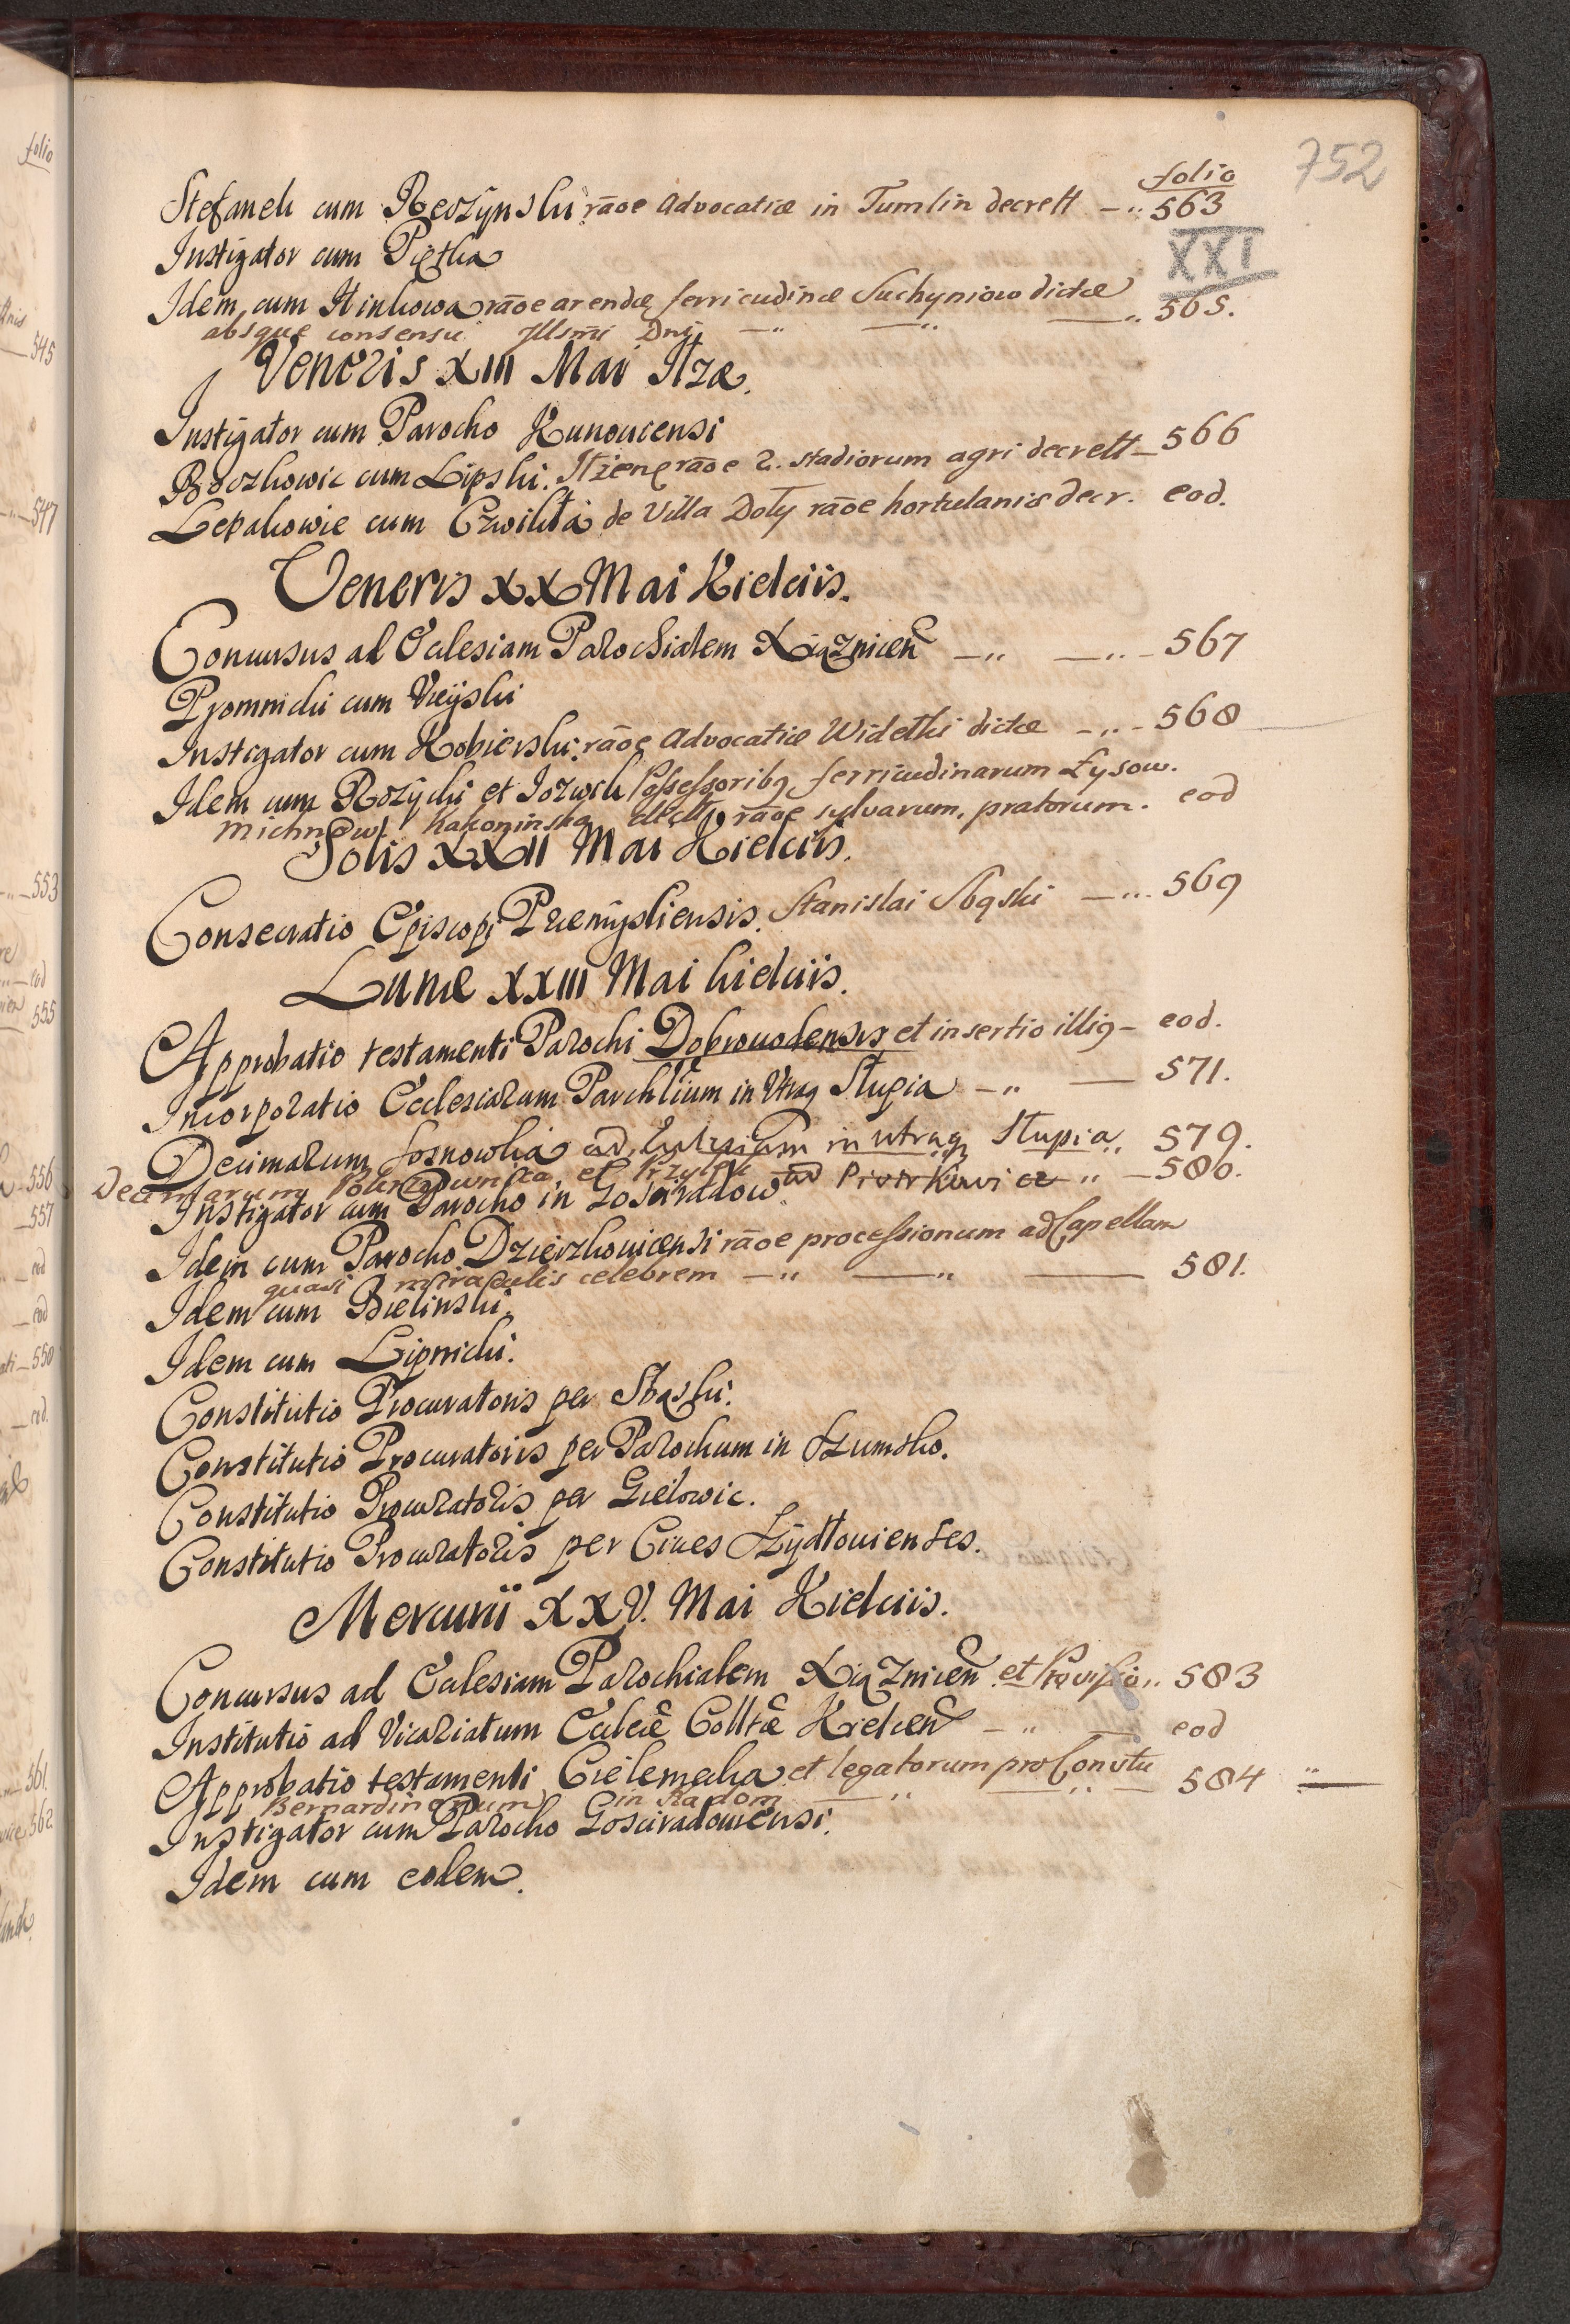 752
folio
Stefanek cum Reczÿnski rāoe Advocatiæ in Tumlin decrett 563
XXI
Instigator cum Piętka
Idem cum Stinkowa rāoe arendæ ferricudinæ Suchyniow dictæ
absque consensu Illsmi Dni 565.
Veneris XIII Mai Ilzæ.
Instigator cum Parocho Kunoucensi
Boczkowic cum Lipski. Ilzienę rāoe 2. stadiorum agri decrett 566
Lepakowie cum Cwikła de Villa Doły rāoe hortulaniæ decr. eod.
Veneris XX Mai Kielciis.
Concursus ad Ecclesiam Parochialem Xiąznicen 567
Promnicki cum Vieÿski
Instigator cum Kobierski rāoe Advocatiæ Widelki dictæ 568
Idem cum Rozÿcki et Jozwik Possessoribq ferricudinarum Łysow.
Michniow. Kakoninska dict. rāoe sylvarum, pratorum. eod
Solis XXII Mai Kielciis.
Consecratio Episcopi Præmÿsliensis. Stanislai Sbąski 569
Lunæ XXIII Mai kielciis.
Approbatio testamenti Parochi Dobrowodensis et insertio illiq eod.
Incorporatio Ecclesiarum Parchlium in Vtraq Słupia 571.
Decimarum Sosnowka ad Ecclesiam in utraq Słupia 579.
Decimarum et ad 580.
Instigator cum Parocho in Gosciradow
Idem cum Parocho Dzierzkouicensi rāoe processionum ad Capellam
quasi miraculis celebrem 581.
Idem cum Bielinski.
Idem cum Lipnicki.
Constitutio Procuratoris per Sbąski.
Constitutio Procuratoris per Parochum in Szumsko.
Constitutio Procuratoris per Gielowic.
Constitutio Procuratoris per Ciues Szÿdłouienses.
Mercurii XXV. Mai Kielciis.
Concursus ad Ecclesiam Parochialem Xiąznicen et Provisio 583
Institutio ad Vicariatum Eccliæ Colltæ Kielcen eod
Approbatio testamenti Cielemęcka et legatorum pro Convtu
Bernardinorum in Radom 584
Instigator cum Parocho Gosciradouiensi.
Idem cum eodem.